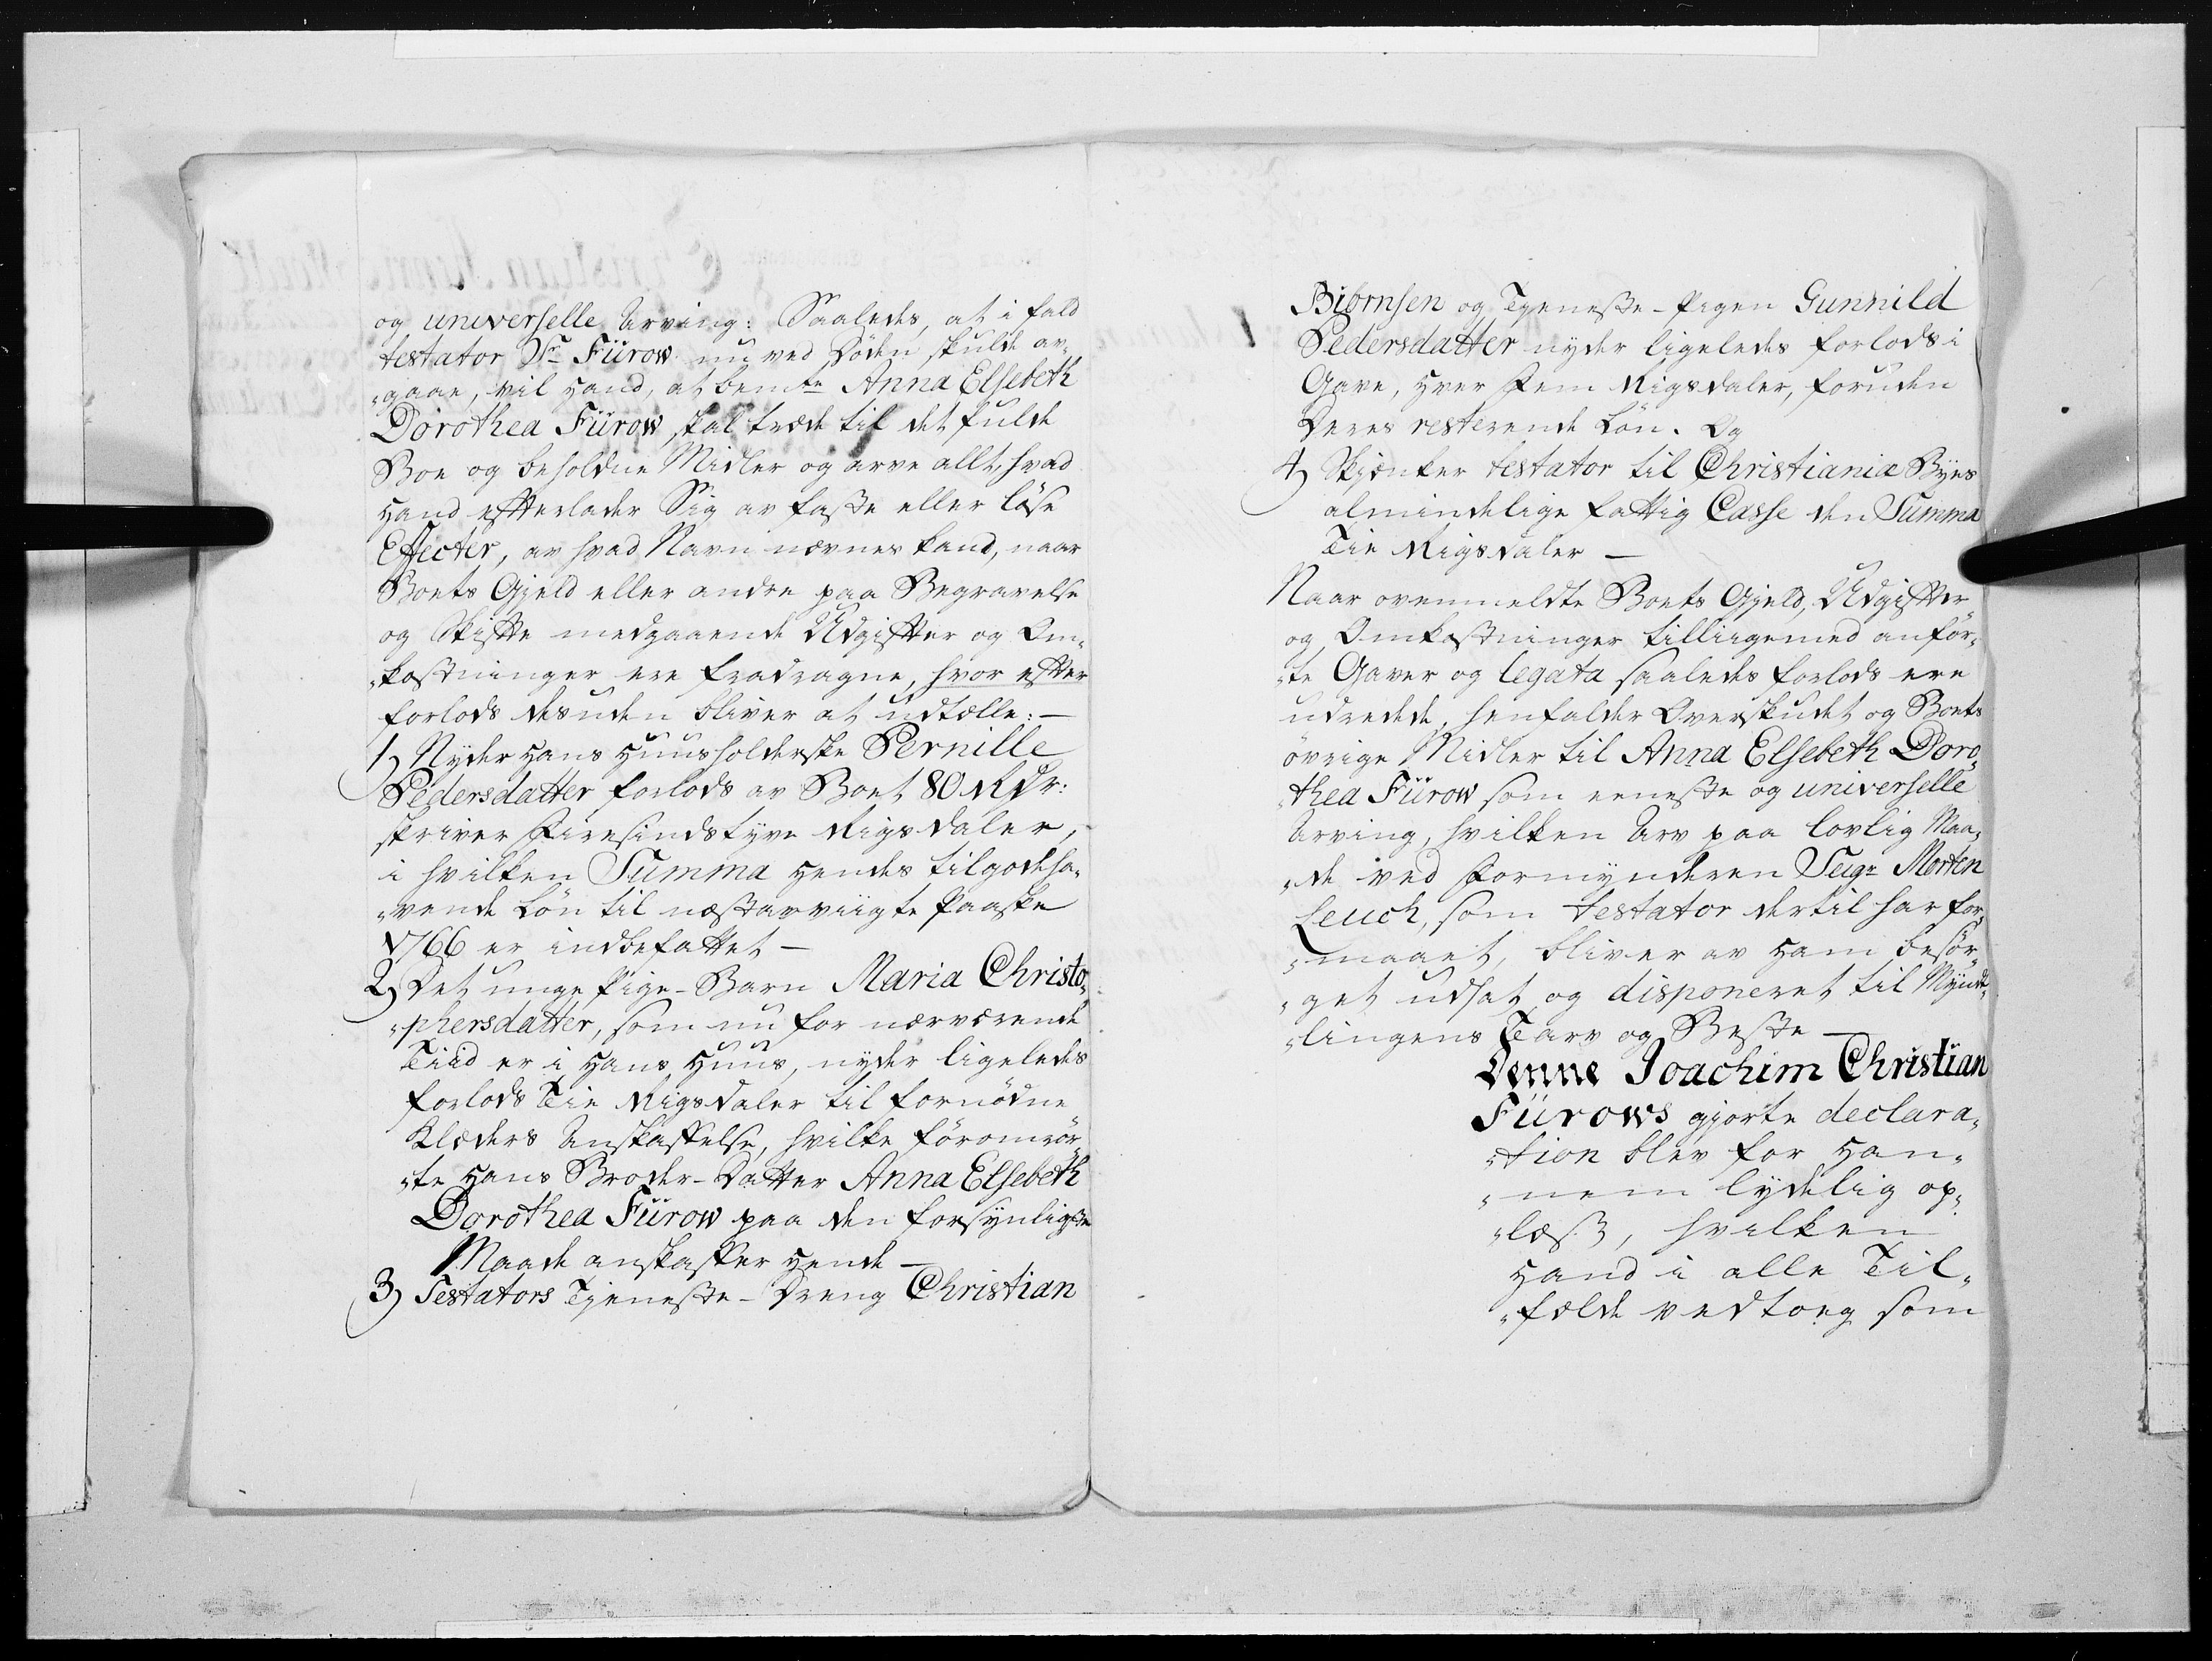 og universelle Arving: Saaledes, at i fald
testator Sr Fürow nu ved Döden skulde av-
"gaae, vil Hand, at bemte Anna Elsebeth
Dorothea Fürow skal træde til det fulde
Boe og beholdne Midler og arve allt, hvad
Hand efterlader Sig av faste eller löse
Effecter, av hvad Navn nævnes kand, naar
Boets Gjeld eller andre paa Begravelse
og Skifte medgaaende Udgifter og Om-
"kostninger ere fradragne, hvor efter
forlods desuden bliver at udtælle:—
1) Nyder Hans Huusholderske Pernille
Pedersdatter forlods av Boet 80 Rdr:
skriver Firesindstyve Rigsdaler,
i hvilken Summa Hendes tilgodeha-
"vende Lön til næstavviigte Paaske
1766 er indbefattet—
2) Det unge Pige-Barn Maria Christo-
"phersdatter, som nu for nærværende
Tiid er i Hans Huus, nyder ligeledes
forlods Tie Rigsdaler til fornödne
Klæders Anskaffelse, hvilke föromrör-
"te Hans Broder-Datter Anna Elsebeth
Dorothea Fürow paa den forsynligste
Maade anskaffer Hende—
3) Testators Tjeneste-Dreng Christian
Biörnsen og Tjeneste-Pigen Gunnild
Pedersdatter nyder ligeledes forlods i
Gave, Hver Fem Rigsdaler, foruden
Deres resterende Lön. Og
4) Skjænker testator til Christianiæ Byes
almindelige Fattig Casse den Summa
Tie Rigsdaler—
Naar ovenmeldte Boets Gjeld, Udgifter
og Omkostninger tilliigemed anför-
"te Gaver og legata saaledes forlods ere
udredede, henfalder Overskudet og Boets
övrige Midler til Anna Elsebeth Doro-
"thea Fürow som eeneste og universelle
Arving, hvilken Arv paa lovlig Maa-
"de ved Formynderen Seigr Morten
Leuch, som testator dertil har for-
"maaet, bliver av Ham besör-
"get udsat og disponeret til Mynd-
"lingens Tarv og Beste—
Denne Joachim Christian
Fürows gjorte declara-
"tion blev for Han-
"nem lydelig op-
"læst, hvilken
Hand i alle Til-
"fælde vedtoeg som